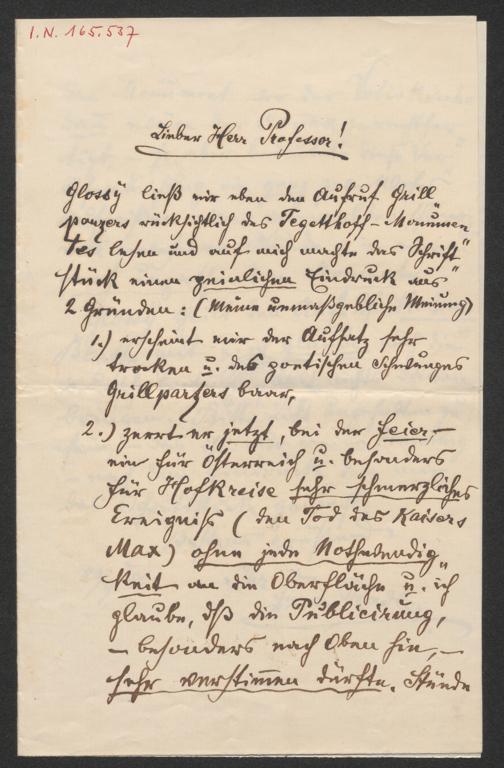 I.N. 165.537
Lieber Herr Professor!
Glossÿ ließ mir eben den Aufruf Grill„
parzers rücksichtlich des Tegetthoff-Monumen„
tes lesen und auf mich machte das Schrift„
stück einen peinlichen Eindruck aus
2 Gründen: (Meine unmaßgebliche Meinung)
1.) erscheint mir der Aufsatz sehr
trocken u. des poetischen Schwunges
Grillparzers baar,
2.) zerrt er jetzt, bei der Feier, –
ein für Österreich u. besonders
für Hofkreise sehr schmerzliches
Ereigniß (den Tod des Kaisers
Max) ohne jede Nothwendig„
keit an die Oberfläche u. ich
glaube, dß die Publicirung,
– besonders nach Oben hin, –
sehr verstimmen dürfte. Stünde